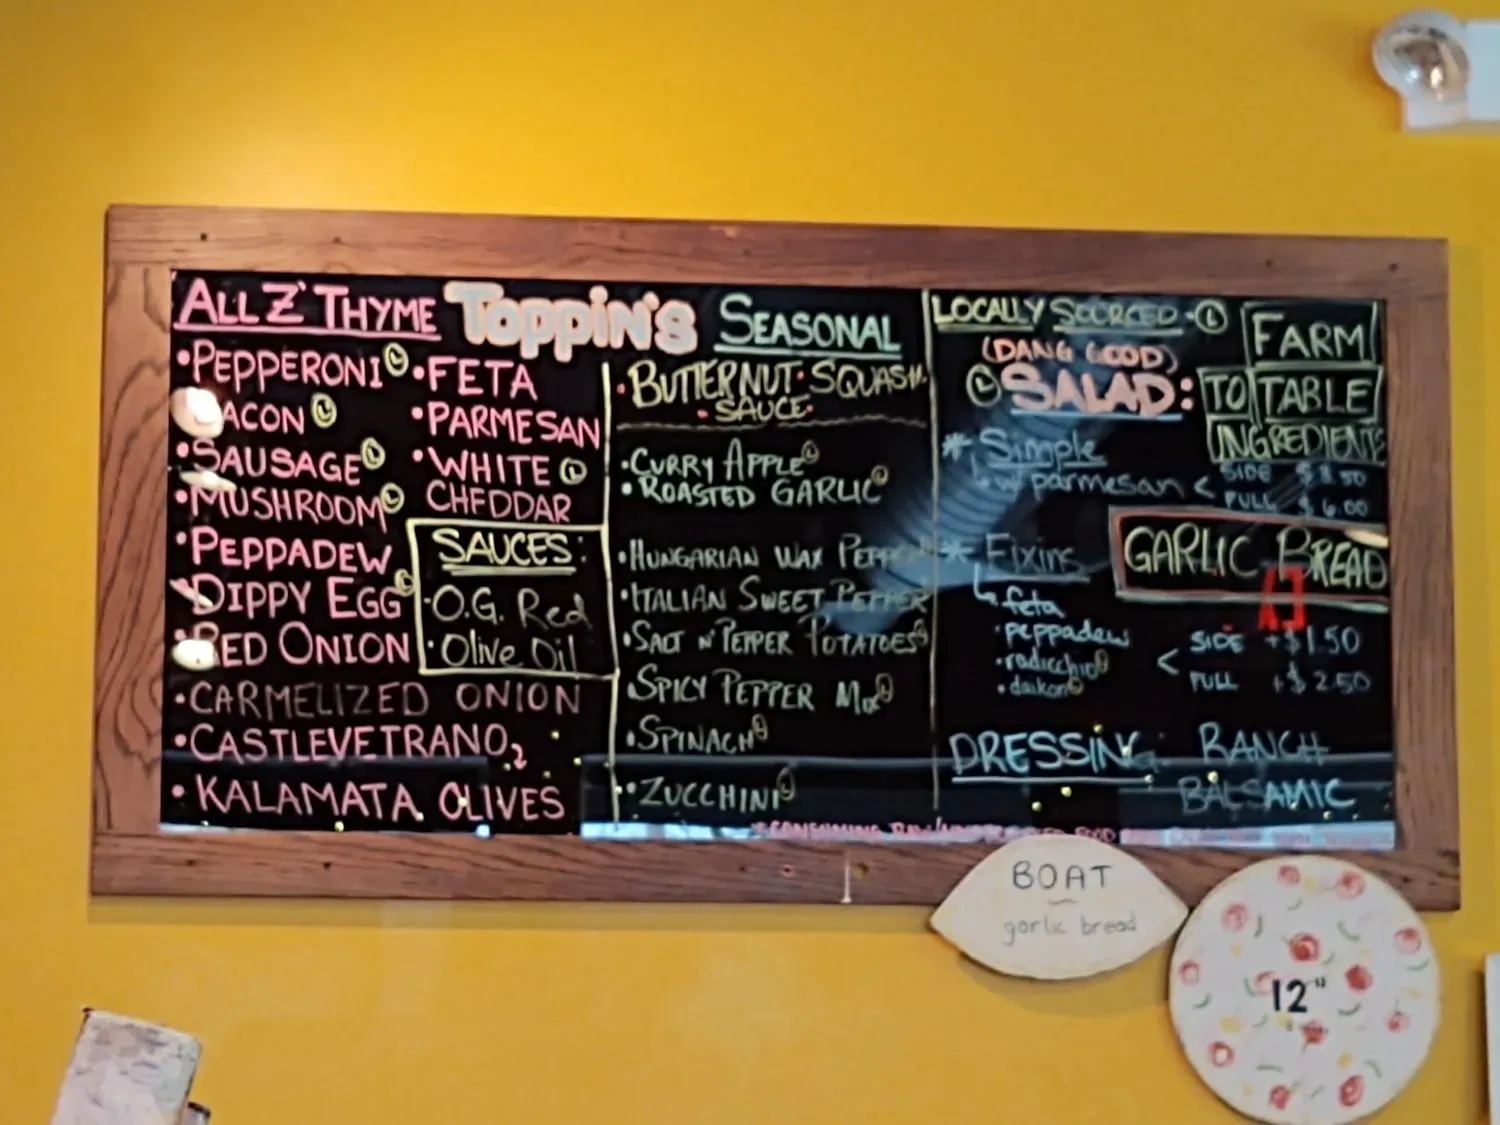 ALL Z' THYME
TOPPIN'S
SEASONAL
•PEPPERONI Ⓛ
BACON Ⓛ
•SAUSAGE Ⓛ
•MUSHROOM Ⓛ
•PEPPADEW
•DIPPY EGG Ⓛ
•RED ONION
•CARMELIZED ONION
•CASTLEVETRANO,
•KALAMATA OLIVES
•FETA
•PARMESAN
•WHITE Ⓛ
CHEDDAR
SAUCES:
•O.G. Red
•Olive Oil
•BUTTERNUT•SQUASH
•SAUCE•
•CURRY APPLE Ⓛ
•ROASTED GARLIC Ⓛ
•HUNGARIAN WAX PEPPER
•ITALIAN SWEET PEPPER
•SALT N' PEPPER POTATOES Ⓛ
•SPICY PEPPER MIX Ⓛ
•SPINACH Ⓛ
•ZUCCHINI Ⓛ
LOCALLY SOURCED - Ⓛ
(DANG GOOD)
Ⓛ SALAD:
FARM
TO TABLE
INGREDIENTS
* Simple
w/ parmesan <
SIDE $3.50
FULL $6.00
GARLIC BREAD
* Fixins
feta
•peppadew
•radicchio Ⓛ
•daikon Ⓛ
< SIDE +$1.50
FULL +$2.50
DRESSING: RANCH
BALSAMIC
*CONSUMING RAW/
FOOD
BOAT
garlic bread
12"